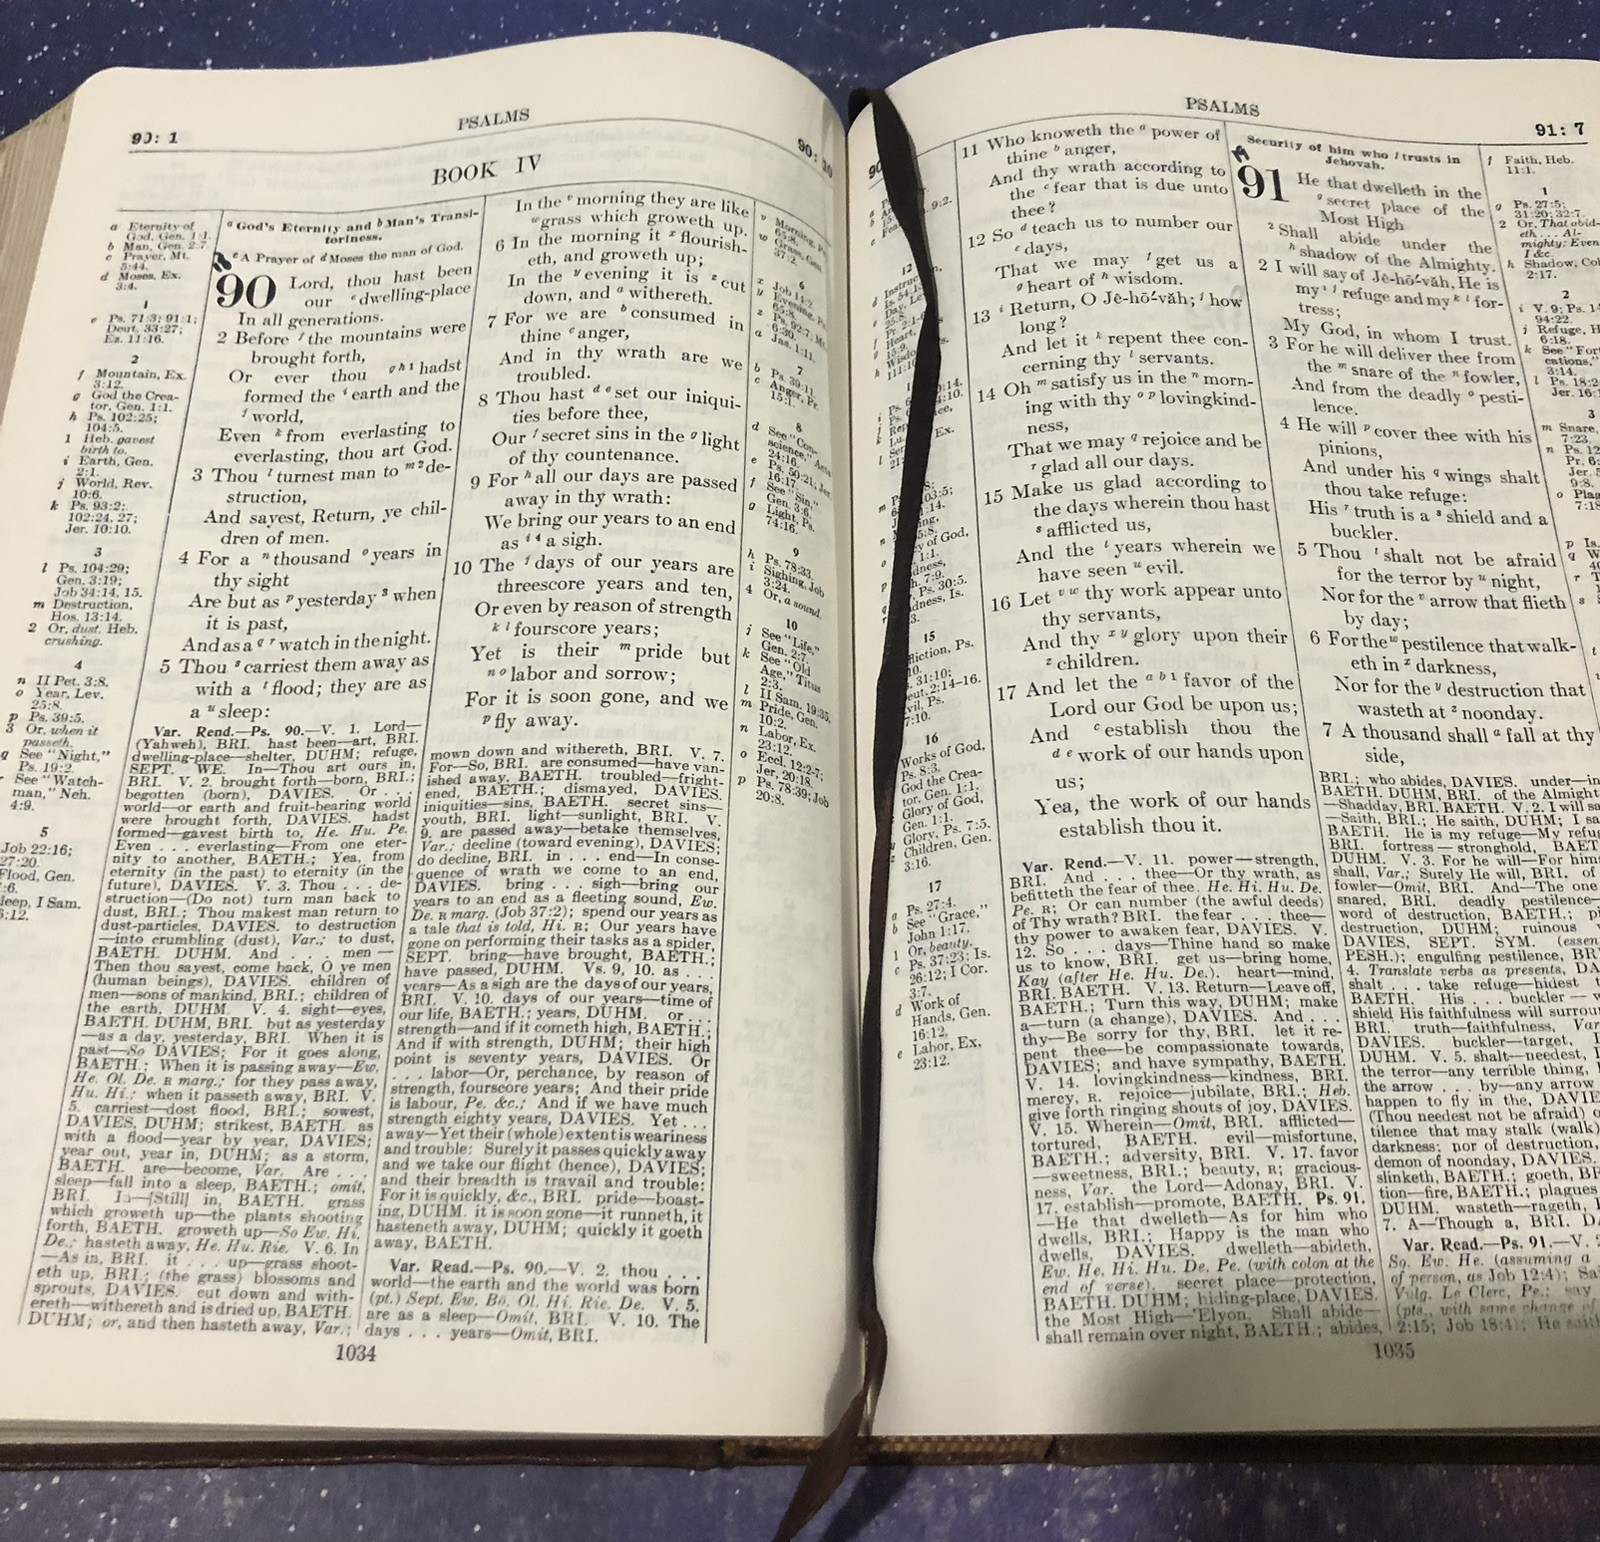 90: 1
PSALMS
BOOK IV
a Eternity of
God, Gen. 1:1.
b Man, Gen. 2:7.
c Prayer, Mt.
5:44.
d Moses, Ex.
3:4.
1
e Ps. 71:3; 91:1;
Deut. 33:27;
Ez. 11:16.
2
f Mountain, Ex.
3:12.
g God the Crea-
tor, Gen. 1:1.
h Ps. 102:25;
104:5.
1 Heb. gavest
birth to.
i Earth, Gen.
2:1.
j World, Rev.
10:6.
k Ps. 93:2;
102:24, 27;
Jer. 10:10.
3
l Ps. 104:29;
Gen. 3:19;
Job 34:14, 15.
m Destruction,
Hos. 13:14.
2 Or, dust. Heb.
crushing.
4
n II Pet. 3:8.
o Year, Lev.
25:8.
p Ps. 39:5.
3 Or, when it
passeth.
q See "Night,"
Ps. 19:2.
r See "Watch-
man," Neh.
4:9.
5
Job 22:16;
27:20.
Flood, Gen.
:6.
leep, I Sam.
:12.
a God's Eternity and b Man's Transi-
toriness.
c A Prayer of d Moses the man of God.
90 Lord, thou hast been
our e dwelling-place
In all generations.
2 Before f the mountains were
brought forth,
Or ever thou g h 1 hadst
formed the i earth and the
j world,
Even k from everlasting to
everlasting, thou art God.
3 Thou l turnest man to m 2 de-
struction,
And sayest, Return, ye chil-
dren of men.
4 For a n thousand o years in
thy sight
Are but as p yesterday 3 when
it is past,
And as a q r watch in the night.
5 Thou s carriest them away as
with a t flood; they are as
a u sleep:
In the v morning they are like
w grass which groweth up.
6 In the morning it x flourish-
eth, and groweth up;
In the y evening it is z cut
down, and a withereth.
7 For we are b consumed in
thine c anger,
And in thy wrath are we
troubled.
8 Thou hast d e set our iniqui-
ties before thee,
Our f secret sins in the g light
of thy countenance.
9 For h all our days are passed
away in thy wrath:
We bring our years to an end
as i 4 a sigh.
10 The j days of our years are
threescore years and ten,
Or even by reason of strength
k l fourscore years;
Yet is their m pride but
n o labor and sorrow;
For it is soon gone, and we
p fly away.
6
x Job 14:2.
7
b Ps. 39:11.
c Anger, Pr.
15:1.
8
d See "Con-
e Ps. 50:21; Jer.
16:17.
f See "Sin,"
Gen. 3:6.
g Light, Ps.
74:16.
9
h Ps. 78:33.
i Sighing, Job
3:24.
4 Or, a sound.
10
j See "Life,"
Gen. 2:7.
k See "Old
Age," Titus
2:3.
l II Sam. 19:35.
m Pride, Gen.
10:2.
n Labor, Ex.
23:12.
o Eccl. 12:2-7;
Jer. 20:18.
p Ps. 78:39; Job
20:8.
Var. Rend.—Ps. 90.—V. 1. Lord—
(Yahweh), BRI. hast been—art, BRI.
dwelling-place—shelter, DUHM; refuge,
SEPT. WE. In—Thou art ours in,
BRI. V. 2. brought forth—born, BRI.;
begotten (born), DAVIES. Or . . .
world—or earth and fruit-bearing world
were brought forth, DAVIES. hadst
formed—gavest birth to, He. Hu. Pe.
Even . . . everlasting—From one eter-
nity to another, BAETH.; Yea, from
eternity (in the past) to eternity (in the
future), DAVIES. V. 3. Thou . . . de-
struction—(Do not) turn man back to
dust, BRI.; Thou makest man return to
dust-particles, DAVIES. to destruction
—into crumbling (dust), Var.; to dust,
BAETH. DUHM. And . . . men—
Then thou sayest, come back, O ye men
(human beings), DAVIES. children of
men—sons of mankind, BRI.; children of
the earth, DUHM. V. 4. sight—eyes,
BAETH. DUHM, BRI. but as yesterday
—as a day, yesterday, BRI. When it is
past—So DAVIES; For it goes along,
BAETH.; When it is passing away—Ew.
He. Ol. De. R marg.; for they pass away,
Hu. Hi.; when it passeth away, BRI. V.
5. carriest—dost flood, BRI.; sowest,
DAVIES, DUHM; strikest, BAETH. as
with a flood—year by year, DAVIES;
year out, year in, DUHM; as a storm,
BAETH. are—become, Var. Are . . .
sleep—fall into a sleep, BAETH.; omit,
BRI. In—[Still] in, BAETH. grass
which groweth up—the plants shooting
forth, BAETH. groweth up—So Ew. Hi.
De.; hasteth away, He. Hu. Rie. V. 6. In
—As in, BRI. it . . . up—grass shoot-
eth up, BRI.; (the grass) blossoms and
sprouts, DAVIES. cut down and with-
ereth—withereth and is dried up, BAETH.
DUHM; or, and then hasteth away, Var.;
mown down and withereth, BRI. V. 7.
For—So, BRI. are consumed—have van-
ished away, BAETH. troubled—fright-
ened, BAETH.; dismayed, DAVIES.
iniquities—sins, BAETH. secret sins—
youth, BRI. light—sunlight, BRI. V.
9. are passed away—betake themselves,
Var.; decline (toward evening), DAVIES;
do decline, BRI. in . . . end—In conse-
quence of wrath we come to an end,
DAVIES. bring . . . sigh—bring our
years to an end as a fleeting sound, Ew.
De. R marg. (Job 37:2); spend our years as
a tale that is told, Hi. R; Our years have
gone on performing their tasks as a spider,
SEPT. bring—have brought, BAETH.;
have passed, DUHM. Vs. 9, 10. as . . .
years—As a sigh are the days of our years,
BRI. V. 10. days of our years—time of
our life, BAETH.; years, DUHM. or . . .
strength—and if it cometh high, BAETH.;
And if with strength, DUHM; their high
point is seventy years, DAVIES. Or
. . . labor—Or, perchance, by reason of
strength, fourscore years; And their pride
is labour, Pe. &c.; And if we have much
strength eighty years, DAVIES. Yet . . .
away—Yet their (whole) extent is weariness
and trouble: Surely it passes quickly away
and we take our flight (hence), DAVIES;
and their breadth is travail and trouble:
For it is quickly, &c., BRI. pride—boast-
ing, DUHM. it is soon gone—it runneth, it
hasteneth away, DUHM; quickly it goeth
away, BAETH.
Var. Read.—Ps. 90.—V. 2. thou . . .
world—the earth and the world was born
(pt.) Sept. Ew. Bö. Ol. Hi. Rie. De. V. 5.
are as a sleep—Omit, BRI. V. 10. The
days . . . years—Omit, BRI.
1034
PSALMS
91: 7
15
16
Works of God,
Ps. 8:3.
God the Crea-
tor, Gen. 1:1.
Glory of God,
Gen. 1:1.
Glory, Ps. 7:5.
Children, Gen.
3:16.
17
a Ps. 27:4.
b See "Grace,"
John 1:17.
1 Or, beauty.
c Ps. 37:23; Is.
26:12; I Cor.
3:7.
d Work of
Hands, Gen.
16:12.
e Labor, Ex.
23:12.
11 Who knoweth the a power of
thine b anger,
And thy wrath according to
the c fear that is due unto
thee?
12 So d teach us to number our
e days,
That we may f get us a
g heart of h wisdom.
13 i Return, O Jē-hō´văh; j how
long?
And let it k repent thee con-
cerning thy l servants.
14 Oh m satisfy us in the n morn-
ing with thy o p lovingkind-
ness,
That we may q rejoice and be
r glad all our days.
15 Make us glad according to
the days wherein thou hast
s afflicted us,
And the t years wherein we
have seen u evil.
16 Let v w thy work appear unto
thy servants,
And thy x y glory upon their
z children.
17 And let the a b 1 favor of the
Lord our God be upon us;
And c establish thou the
d e work of our hands upon
us;
Yea, the work of our hands
establish thou it.
Security of him who f trusts in
Jehovah.
91 He that dwelleth in the
g secret place of the
Most High
2 Shall abide under the
h shadow of the Almighty.
2 I will say of Jē-hō´văh, He is
my i j refuge and my k l for-
tress;
My God, in whom I trust.
3 For he will deliver thee from
the m snare of the n fowler,
And from the deadly o pesti-
lence.
4 He will p cover thee with his
pinions,
And under his q wings shalt
thou take refuge:
His r truth is a s shield and a
buckler.
5 Thou t shalt not be afraid
for the terror by u night,
Nor for the v arrow that flieth
by day;
6 For the w pestilence that walk-
eth in x darkness,
Nor for the y destruction that
wasteth at z noonday.
7 A thousand shall a fall at thy
side,
f Faith, Heb.
11:1.
1
g Ps. 27:5;
31:20; 32:7.
2 Or, That abid-
eth . . . Al-
mighty: Even
I &c.
h Shadow, Col.
2:17.
2
i V. 9; Ps. 14
94:22.
j Refuge, H
6:18.
k See "For
cations,"
3:14.
l Ps. 18:2
Jer. 16:1
3
m Snare,
7:23.
n Ps. 12
Pr. 6:
Jer. 5
9:8.
o Plag
7:18
p Is.
Var. Rend.—V. 11. power—strength,
BRI. And . . . thee—Or thy wrath, as
befitteth the fear of thee, He. Hi. Hu. De.
Pe. R; Or can number (the awful deeds)
of Thy wrath? BRI. the fear . . . thee—
thy power to awaken fear, DAVIES. V.
12. So . . . days—Thine hand so make
us to know, BRI. get us—bring home,
Kay (after He. Hu. De.). heart—mind,
BRI. BAETH. V. 13. Return—Leave off,
BAETH.; Turn this way, DUHM; make
a—turn (a change), DAVIES. And . . .
thy—Be sorry for thy, BRI. let it re-
pent thee—be compassionate towards,
DAVIES; and have sympathy, BAETH.
V. 14. lovingkindness—kindness, BRI.
mercy, R. rejoice—jubilate, BRI.; Heb.
give forth ringing shouts of joy, DAVIES.
V. 15. Wherein—Omit, BRI. afflicted—
tortured, BAETH. evil—misfortune,
BAETH.; adversity, BRI. V. 17. favor
—sweetness, BRI.; beauty, R; gracious-
ness, Var. the Lord—Adonay, BRI. V.
17. establish—promote, BAETH. Ps. 91.
—He that dwelleth—As for him who
dwells, BRI.; Happy is the man who
dwells, DAVIES. dwelleth—abideth,
Ew. He. Hi. Hu. De. Pe. (with colon at the
end of verse). secret place—protection,
BAETH. DUHM; hiding-place, DAVIES.
the Most High—'Elyon. Shall abide—
shall remain over night, BAETH.; abides,
BRI.; who abides, DAVIES. under—in
BAETH. DUHM, BRI. of the Almight
—Shadday, BRI. BAETH. V. 2. I will sa
—Saith, BRI.; He saith, DUHM; I sa
BAETH. He is my refuge—My refug
BRI. fortress—stronghold, BAET
DUHM. V. 3. For he will—For him
shall, Var.; Surely He will, BRI. of
fowler—Omit, BRI. And—The one
snared, BRI. deadly pestilence—
word of destruction, BAETH.; pi
destruction, DUHM; ruinous
DAVIES, SEPT. SYM. (essen
PESH.); engulfing pestilence, BR
4. Translate verbs as presents, DA
shalt . . . take refuge—hidest t
BAETH. His . . . buckler—w
shield His faithfulness will surrou
BRI. truth—faithfulness, Var
DAVIES. buckler—target,
DUHM. V. 5. shalt—needest,
the terror—any terrible thing,
the arrow . . . by—any arrow
happen to fly in the, DAVIE
(Thou needest not be afraid) o
tilence that may stalk (walk)
darkness; nor of destruction,
demon of noonday, DAVIES.
slinketh, BAETH.; goeth, BR
tion—fire, BAETH.; plagues
DUHM. wasteth—rageth,
7. A—Though a, BRI. DA
Var. Read.—Ps. 91.—V. 2
So, Ew. He. (assuming a
of person, as Job 12:4); Sa
Vulg. Le Clerc, Pe.; say
(pts., with same change of
2:15; Job 18:4); He saith
1035